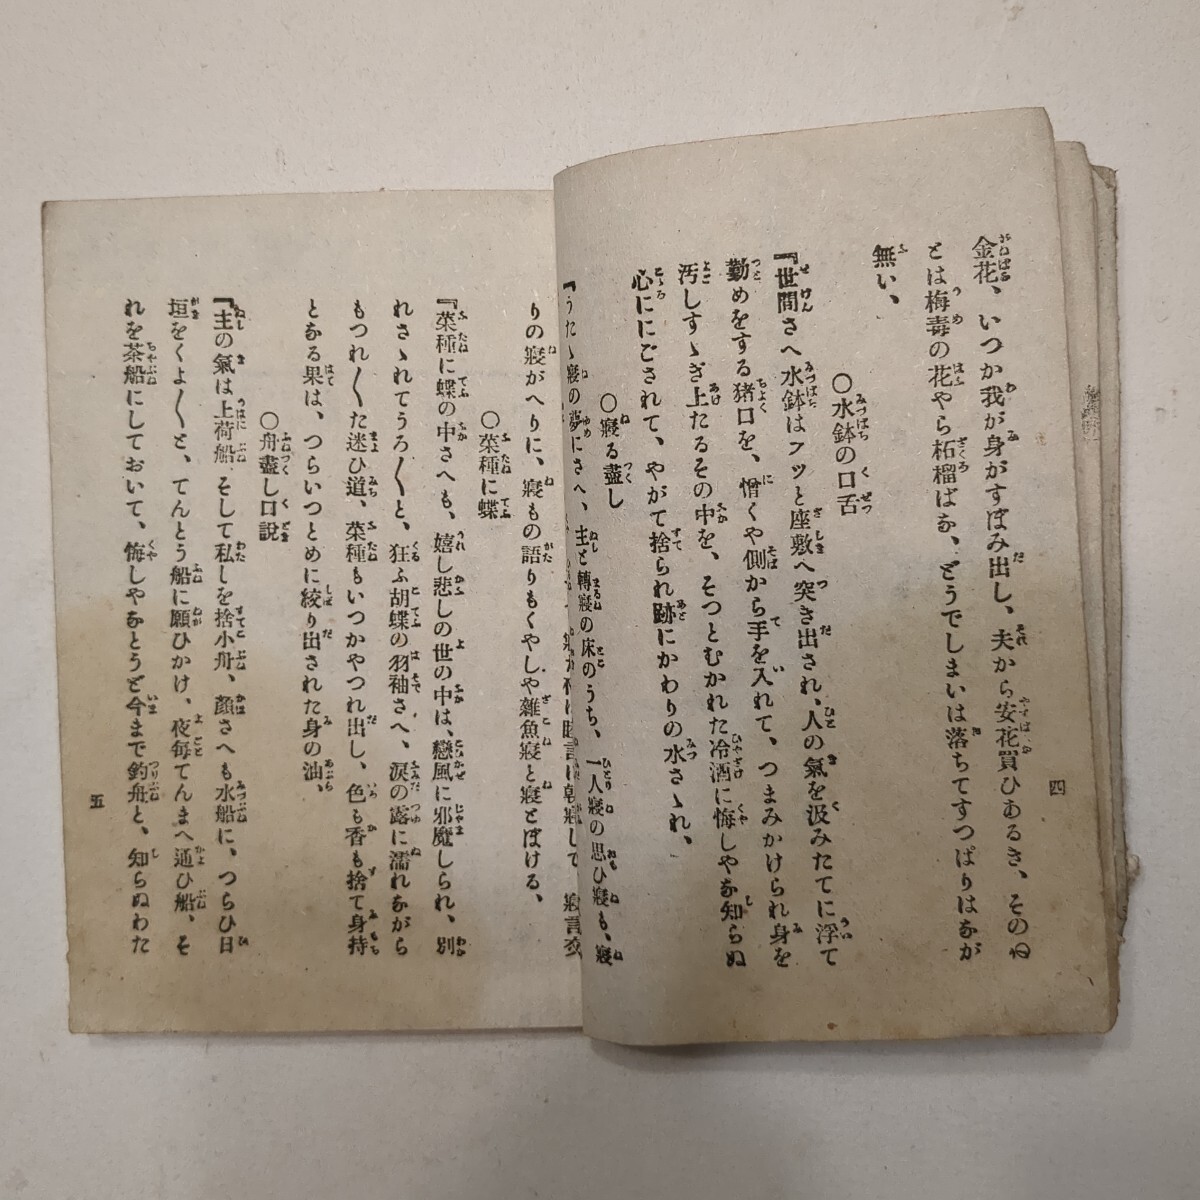 金花、いつか我が身がすぼみ出し、夫から安花買ひあるき、そのね
とは梅毒の花やら柘榴ばな、どうでしまいは落ちてすつぱりはなが
無い、
○水鉢の口舌
『世間さへ水鉢はフッと座敷へ突き出され、人の氣を汲みたてに浮て
勤めをする猪口を、憎くや側から手を入れて、つまみかけられ身を
汚しすゝぎ上たるその中を、そつとむかれた冷酒に悔しやな知らぬ
心ににごされて、やがて捨られ跡にかわりの水さゝれ、
○寢る盡し
『うたゝ寢の夢にさへ、主と轉寢の床のうち、一人寢の思ひ寢も、寢
四
りの寢がへりに、寢もの語りもくやしや雜魚寢と寢とぼける、
○菜種に蝶
『菜種に蝶の中さへも、嬉し悲しの世の中は、戀風に邪魔しられ、別
れさゝれてうろ〱と、狂ふ胡蝶の羽袖さへ、涙の露に濡れながら
もつれ〱た迷ひ道、菜種もいつかやつれ出し、色も香も捨て身持
となる果は、つらいつとめに絞り出された身の油、
○舟盡し口説
『主の氣は上荷船、そして私しを捨小舟、顏さへも水船に、つらひ日
垣をくよ〱と、てんとう船に願ひかけ、夜毎てんまへ通ひ船、そ
れを茶船にしておいて、悔しやなとうど今まで釣舟と、知らぬわた
五